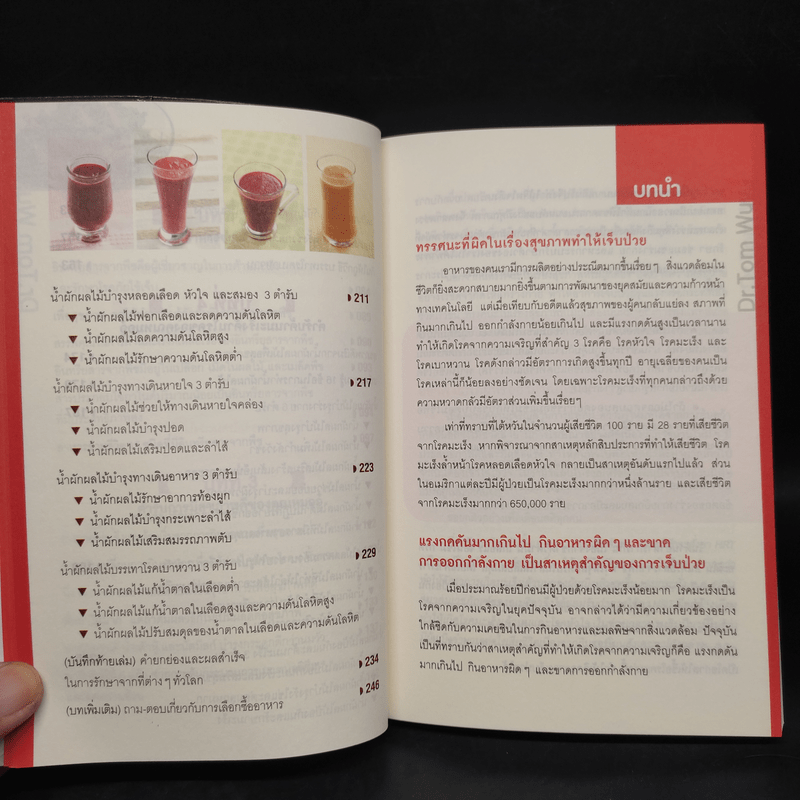 น้ำผักผลไม้บำรุงหลอดเลือด หัวใจ และสมอง 3 ตำรับ 211
▼ น้ำผักผลไม้ฟอกเลือดและลดความดันโลหิต
▼ น้ำผักผลไม้ลดความดันโลหิตสูง
▼ น้ำผักผลไม้รักษาความดันโลหิตต่ำ
น้ำผักผลไม้บำรุงทางเดินหายใจ 3 ตำรับ 217
▼ น้ำผักผลไม้ช่วยให้ทางเดินหายใจคล่อง
▼ น้ำผักผลไม้บำรุงปอด
▼ น้ำผักผลไม้เสริมปอดและลำไส้
น้ำผักผลไม้บำรุงทางเดินอาหาร 3 ตำรับ 223
▼ น้ำผักผลไม้รักษาอาการท้องผูก
▼ น้ำผักผลไม้บำรุงกระเพาะลำไส้
▼ น้ำผักผลไม้เสริมสมรรถภาพตับ
น้ำผักผลไม้บรรเทาโรคเบาหวาน 3 ตำรับ 229
▼ น้ำผักผลไม้แก้น้ำตาลในเลือดต่ำ
▼ น้ำผักผลไม้แก้น้ำตาลในเลือดสูงและความดันโลหิตสูง
▼ น้ำผักผลไม้ปรับสมดุลของน้ำตาลในเลือดและความดันโลหิต
(บันทึกท้ายเล่ม) คำยกย่องและผลสำเร็จ 234
ในการรักษาจากที่ต่าง ๆ ทั่วโลก
(บทเพิ่มเติม) ถาม-ตอบเกี่ยวกับการเลือกซื้ออาหาร 246
บทนำ
Dr.Tom Wu
ทรรศนะที่ผิดในเรื่องสุขภาพทำให้เจ็บป่วย
อาหารของคนเรามีการผลิตอย่างประณีตมากขึ้นเรื่อยๆ สิ่งแวดล้อมใน
ชีวิตก็ยิ่งสะดวกสบายมากยิ่งขึ้นตามการพัฒนาของยุคสมัยและความก้าวหน้า
ทางเทคโนโลยี แต่เมื่อเทียบกับอดีตแล้วสุขภาพของผู้คนกลับแย่ลง สภาพที่
กินมากเกินไป ออกกำลังกายน้อยเกินไป และมีแรงกดดันสูงเป็นเวลานาน
ทำให้เกิดโรคจากความเจริญที่สำคัญ 3 โรคคือ โรคหัวใจ โรคมะเร็ง และ
โรคเบาหวาน โรคดังกล่าวมีอัตราการเกิดสูงขึ้นทุกปี อายุเฉลี่ยของคนเป็น
โรคเหล่านี้ก็น้อยลงอย่างชัดเจน โดยเฉพาะโรคมะเร็งที่ทุกคนกล่าวถึงด้วย
ความหวาดกลัวมีอัตราส่วนเพิ่มขึ้นเรื่อยๆ
เท่าที่ทราบที่ไต้หวันในจำนวนผู้เสียชีวิต 100 ราย มี 28 รายที่เสียชีวิต
จากโรคมะเร็ง หากพิจารณาจากสาเหตุหลักสิบประการที่ทำให้เสียชีวิต โรค
มะเร็งล้ำหน้าโรคหลอดเลือดหัวใจ กลายเป็นสาเหตุอันดับแรกไปแล้ว ส่วน
ในอเมริกาแต่ละปีมีผู้ป่วยเป็นโรคมะเร็งมากกว่าหนึ่งล้านราย และเสียชีวิต
จากโรคมะเร็งมากกว่า 650,000 ราย
แรงกดดันมากเกินไป กินอาหารผิด ๆ และขาด
การออกกำลังกาย เป็นสาเหตุสำคัญของการเจ็บป่วย
เมื่อประมาณร้อยปีก่อนมีผู้ป่วยด้วยโรคมะเร็งน้อยมาก โรคมะเร็งเป็น
โรคจากความเจริญในยุคปัจจุบัน อาจกล่าวได้ว่ามีความเกี่ยวข้องอย่าง
ใกล้ชิดกับความเคยชินในการกินอาหารและมลพิษจากสิ่งแวดล้อม ปัจจุบัน
เป็นที่ทราบกันว่าสาเหตุสำคัญที่ทำให้เกิดโรคจากความเจริญก็คือ แรงกดดัน
มากเกินไป กินอาหารผิดๆ และขาดการออกกำลังกาย